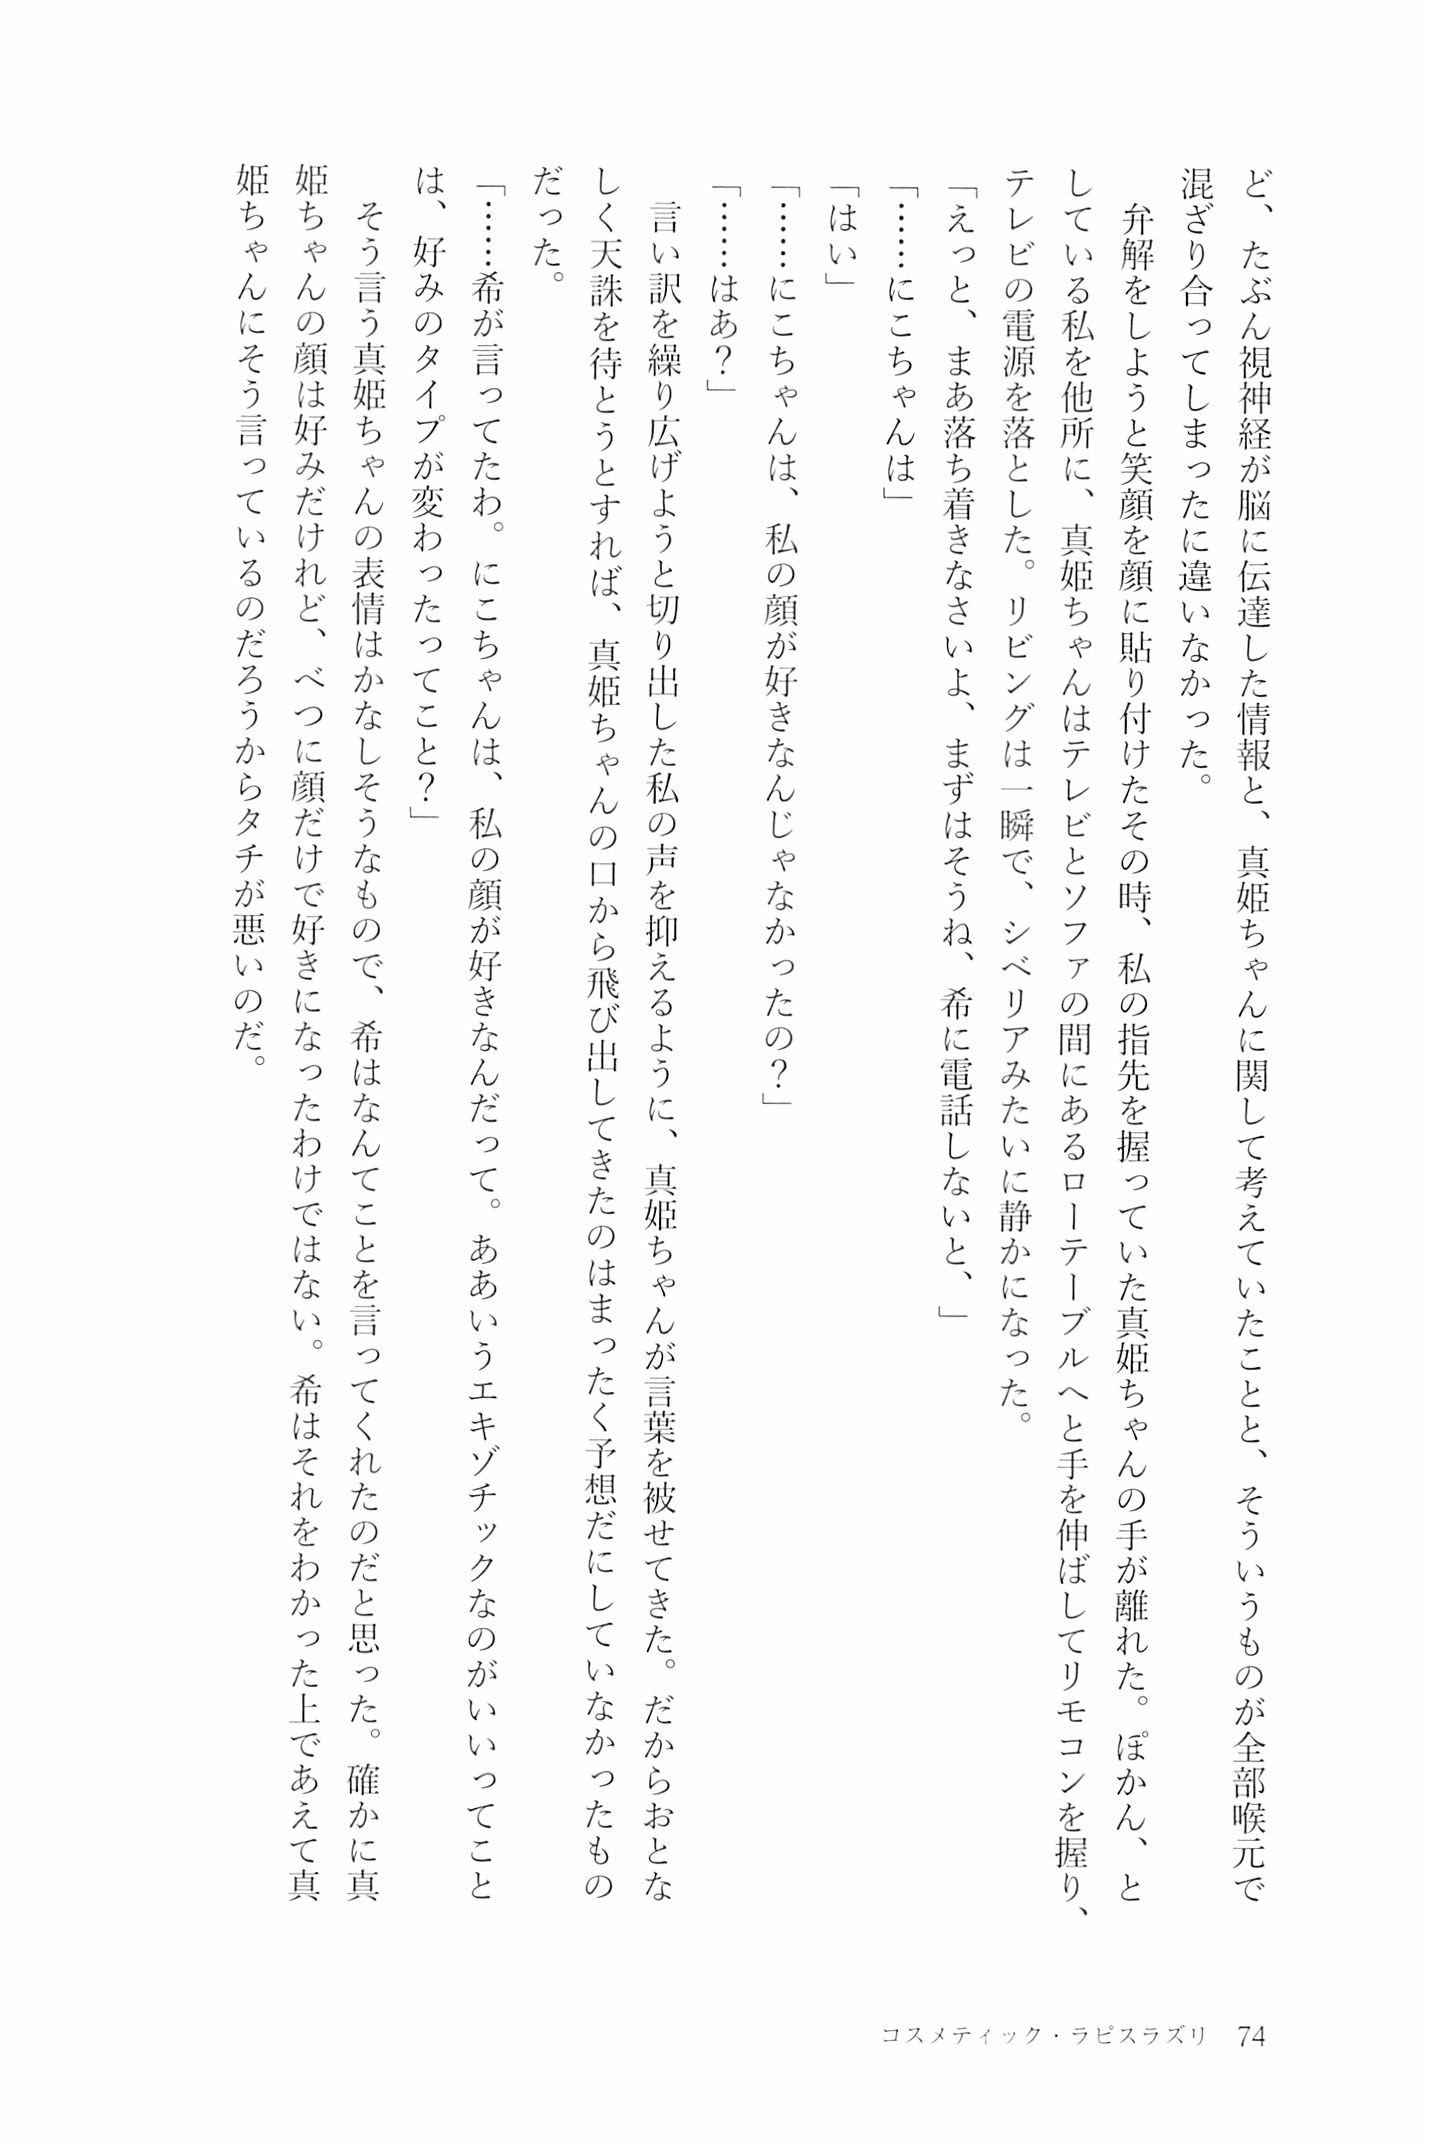 ど、たぶん視神経が脳に伝達した情報と、真姫ちゃんに関して考えていたことと、そういうものが全部喉元で
混ざり合ってしまったに違いなかった。
　弁解をしようと笑顔を顔に貼り付けたその時、私の指先を握っていた真姫ちゃんの手が離れた。ぽかん、と
している私を他所に、真姫ちゃんはテレビとソファの間にあるローテーブルへと手を伸ばしてリモコンを握り、
テレビの電源を落とした。リビングは一瞬で、シベリアみたいに静かになった。
「えっと、まあ落ち着きなさいよ、まずはそうね、希に電話しないと、」
「……にこちゃんは」
「はい」
「……にこちゃんは、私の顔が好きなんじゃなかったの？」
「……はあ？」
　言い訳を繰り広げようと切り出した私の声を抑えるように、真姫ちゃんが言葉を被せてきた。だからおとな
しく天誅を待とうとすれば、真姫ちゃんの口から飛び出してきたのはまったく予想だにしていなかったもの
だった。
「……希が言ってたわ。にこちゃんは、私の顔が好きなんだって。ああいうエキゾチックなのがいいってこと
は、好みのタイプが変わったってこと？」
　そう言う真姫ちゃんの表情はかなしそうなもので、希はなんてことを言ってくれたのだと思った。確かに真
姫ちゃんの顔は好みだけれど、べつに顔だけで好きになったわけではない。希はそれをわかった上であえて真
姫ちゃんにそう言っているのだろうからタチが悪いのだ。
コスメティック・ラピスラズリ　74